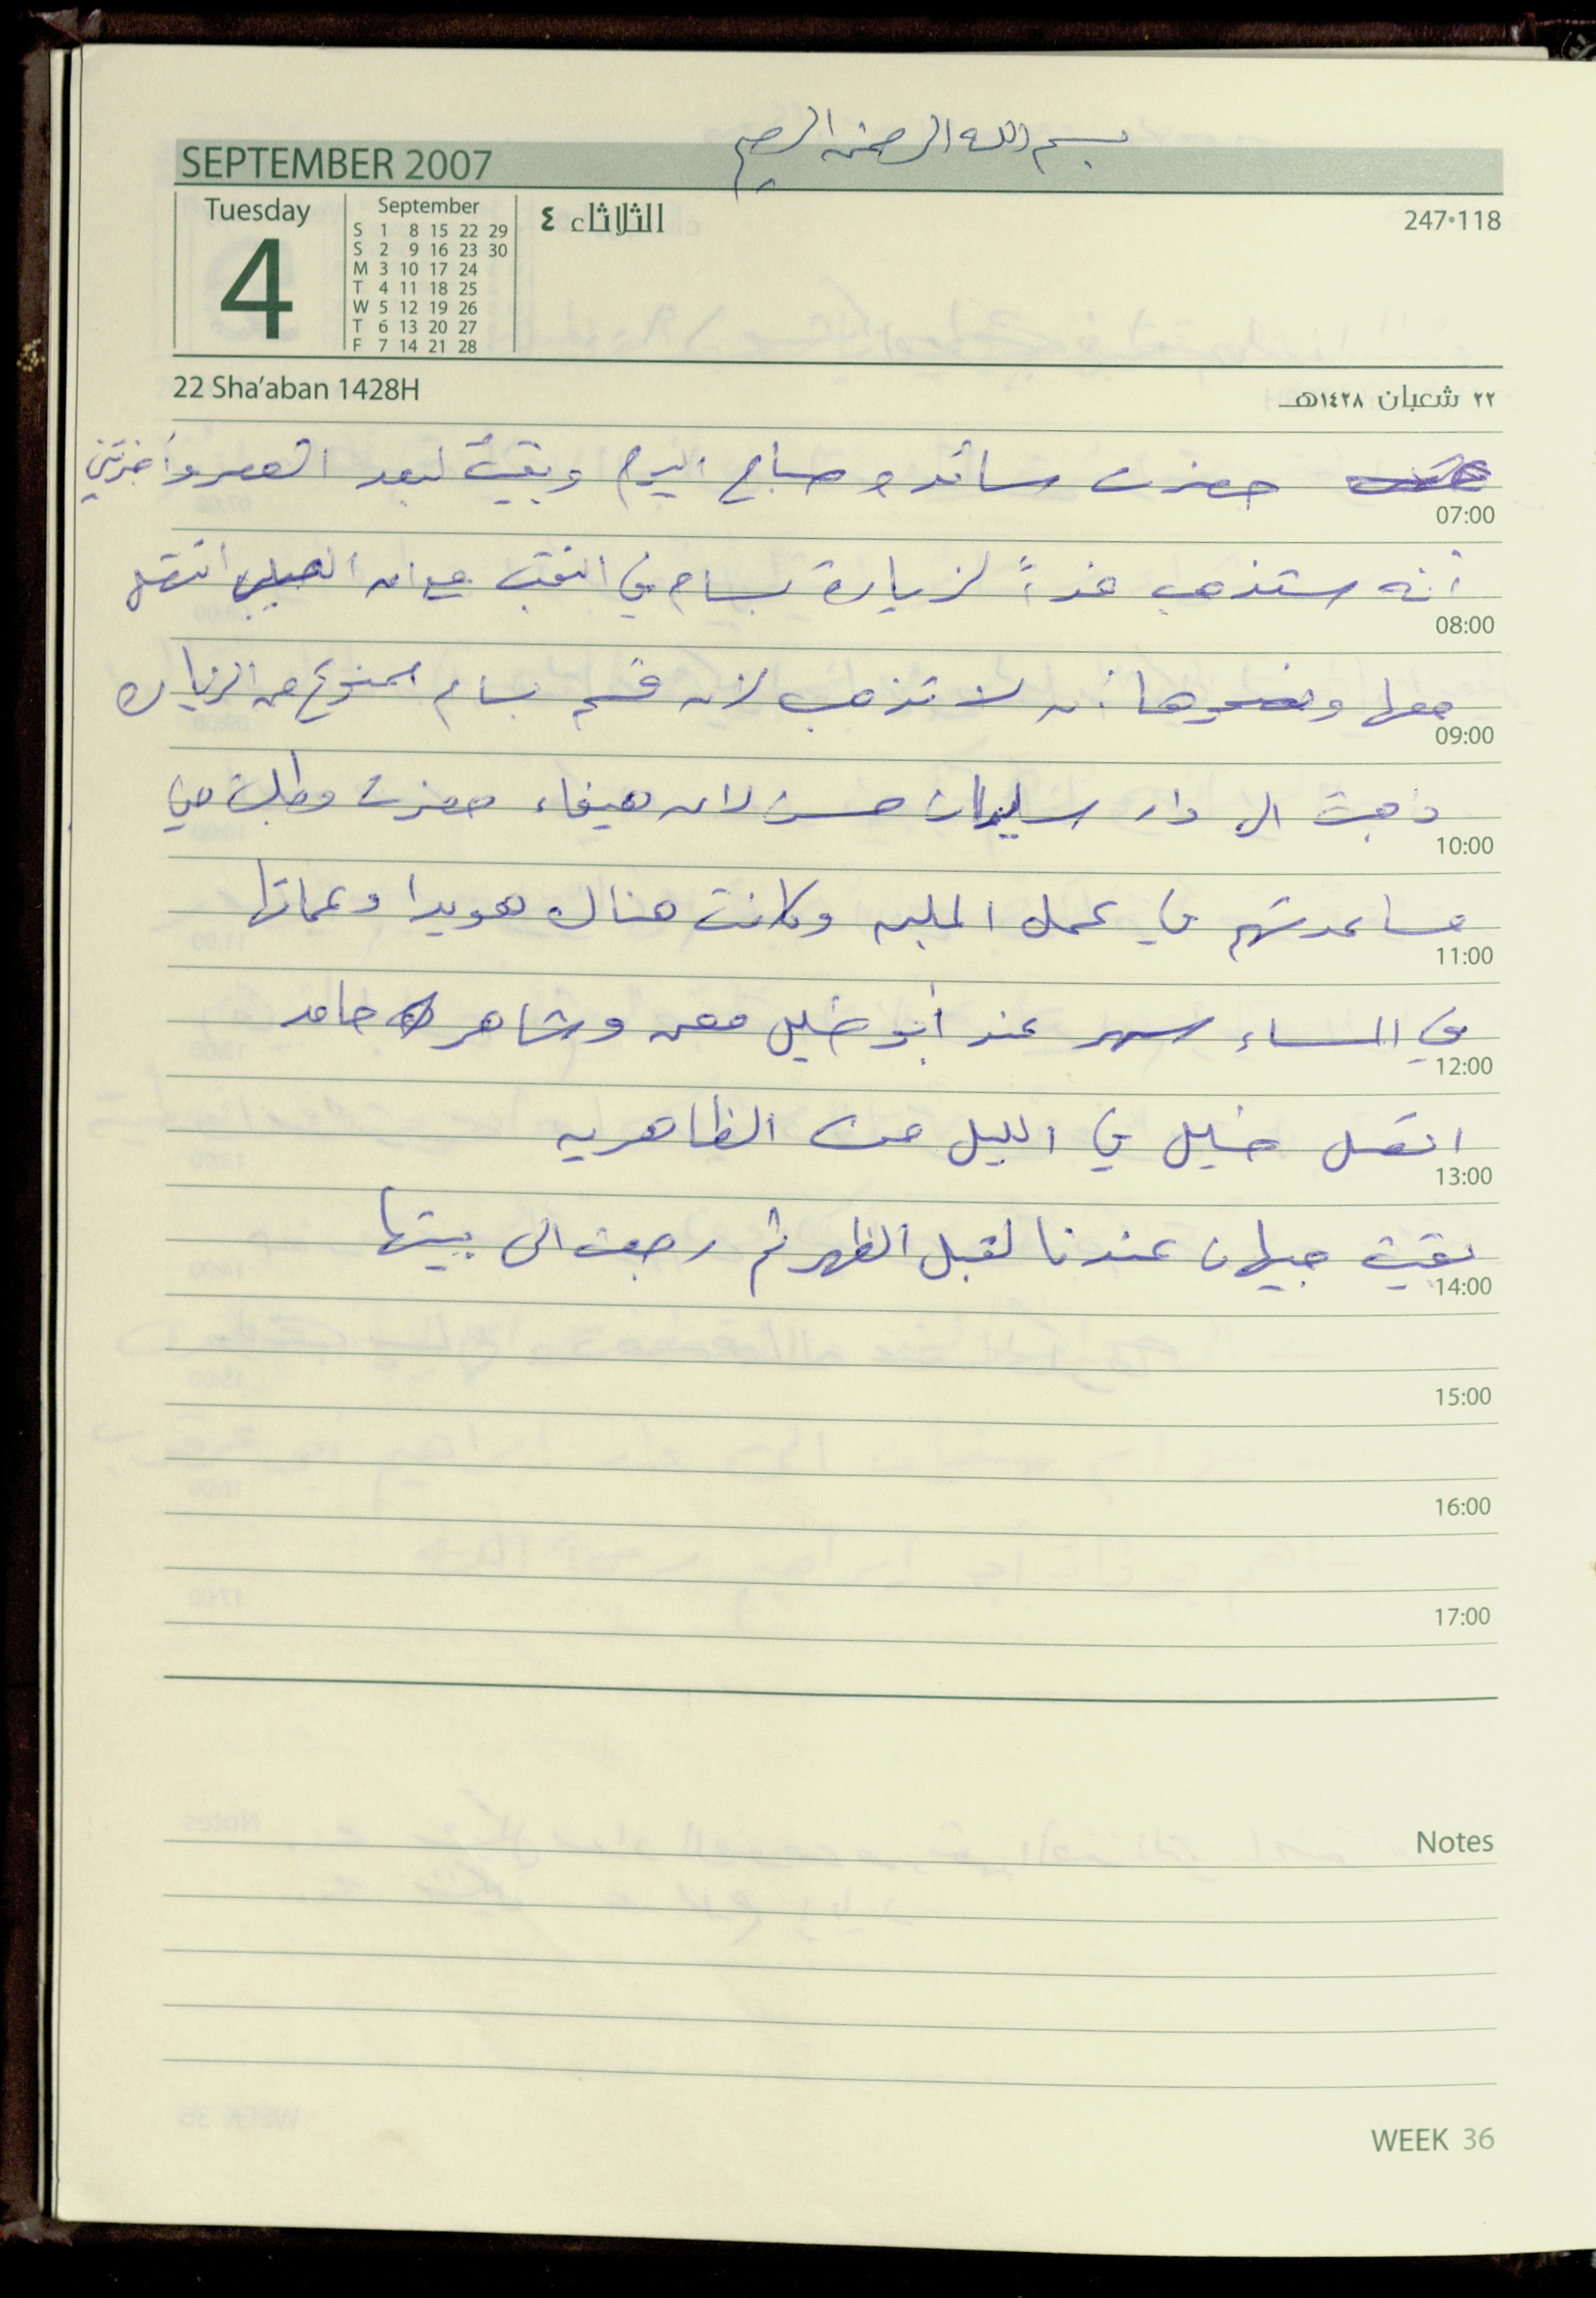 بسم الله الرحمن الرحيم
SEPTEMBER 2007
Tuesday
4
September
S 1 8 15 22 29
S 2 9 16 23 30
M 3 10 17 24
T 4 11 18 25
W 5 12 19 26
T 6 13 20 27
F 7 14 21 28
الثلاثاء ٤
247•118
22 Sha'aban 1428H
٢٢ شعبان ١٤٢٨هـ
حضرت صباح اليوم وبقيت لبعد العصر وأخبرتني
07:00
أنه ستذهب غداً لزيارة بسام في النقب مع ان الصليب اتصل
08:00
معها ونصحوها ان لا تذهب لان قسم بسام ممنوع من الزيارة
09:00
ذهبت الى دار سليمان حسن لان هيفاء حضرت وطلبت مني
10:00
مساعدتهم في عمل الملبن وكانت هناك هويدا وعماتها
11:00
في المساء سهر عند أبو خليل معن وشاهر حامد
12:00
اتصل خليل في الليل من الظاهريه
13:00
بقيت جيهان عندنا لقبل الظهر ثم رجعت الى بيتها
14:00
15:00
16:00
17:00
Notes
WEEK 36